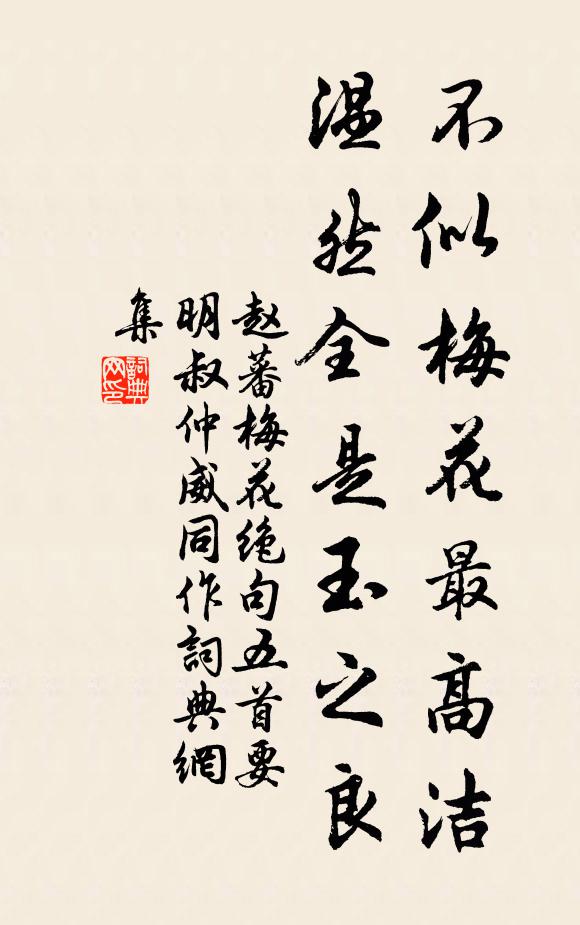 不似梅花最高洁
温然全是玉之良
赵蕃梅花绝句五首要
明叔仲威同作詞典網
集
詞典
网印